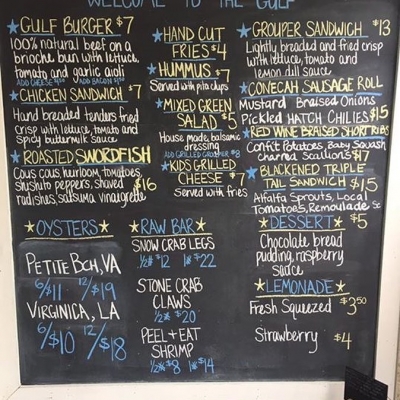 WELCOME TO THE GULF
GULF BURGER $7
100% natural beef on a
brioche bun with lettuce,
tomato and garlic aioli
ADD CHEESE ADD BACON
CHICKEN SANDWICH $7
Hand breaded tenders fried
crisp with lettuce, tomato and
spicy buttermilk sauce
ROASTED SWORDFISH
Cous cous, heirloom tomatoes,
shishito peppers, shaved $16
radishes, salsuma vinaigrette
OYSTERS
PETITE BCH, VA
6/$11 12/$19
VIRGINICA, LA
6/$10 12/$18
HAND CUT
FRIES $4
HUMMUS $7
Served with pita chips
MIXED GREEN
SALAD $5
House made, balsamic
dressing
ADD GRILLED GROUPER $8
KID'S GRILLED
CHEESE $7
Served with fries
RAW BAR
SNOW CRAB LEGS
1/2# $12 1# $22
STONE CRAB
CLAWS
1/2# $20
PEEL + EAT
SHRIMP
1/2# $8 1# $14
GROUPER SANDWICH $13
Lightly breaded and fried crisp
with lettuce, tomato and
lemon dill sauce
CONECAH SAUSAGE ROLL
Mustard Braised Onions
Pickled HATCH CHILIES $15
RED WINE BRAISED SHORT RIBS
Confit Potatoes, Baby Squash
charred Scallions $17
BLACKENED TRIPLE
TAIL SANDWICH $15
Alfalfa Sprouts, Local
Tomatoes, Remoulade
DESSERT $5
Chocolate bread
pudding, raspberry
sauce
LEMONADE
Fresh Squeezed $3.50
Strawberry $4